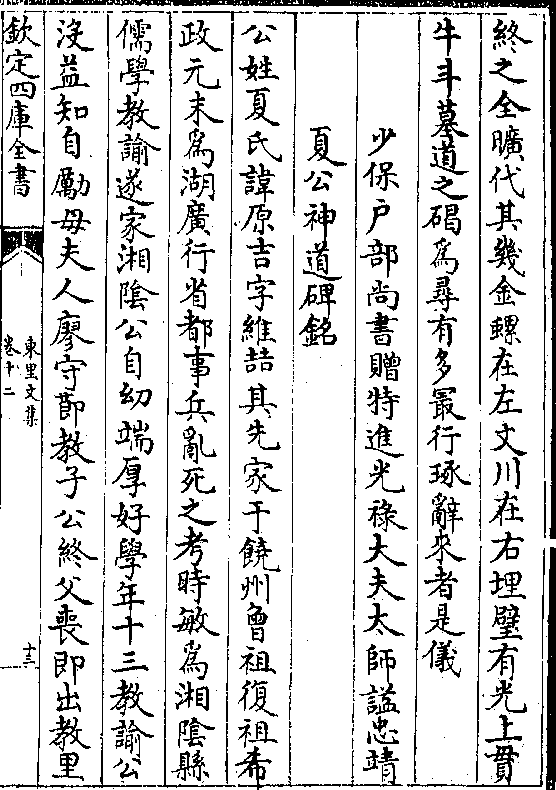 終之全曠代其幾金螺在左文川在右埋璧有光上貫
牛斗墓道之碣爲尋有多最行琢辭來者是儀
少保户部尚書贈特進光祿大夫太師謚忠靖
夏公神道碑銘
公姓夏氏諱原吉字維喆其先家于饒州曾祖復祖希
政元末爲湖廣行省都事兵亂死之考時敏爲湘陰縣
儒學教諭遂家湘陰公自幼端厚好學年十三教諭公
沒益知自勵母夫人廖守節教子公終父喪即出教里
欽定四庫全書
東里文集
卷十二
十三